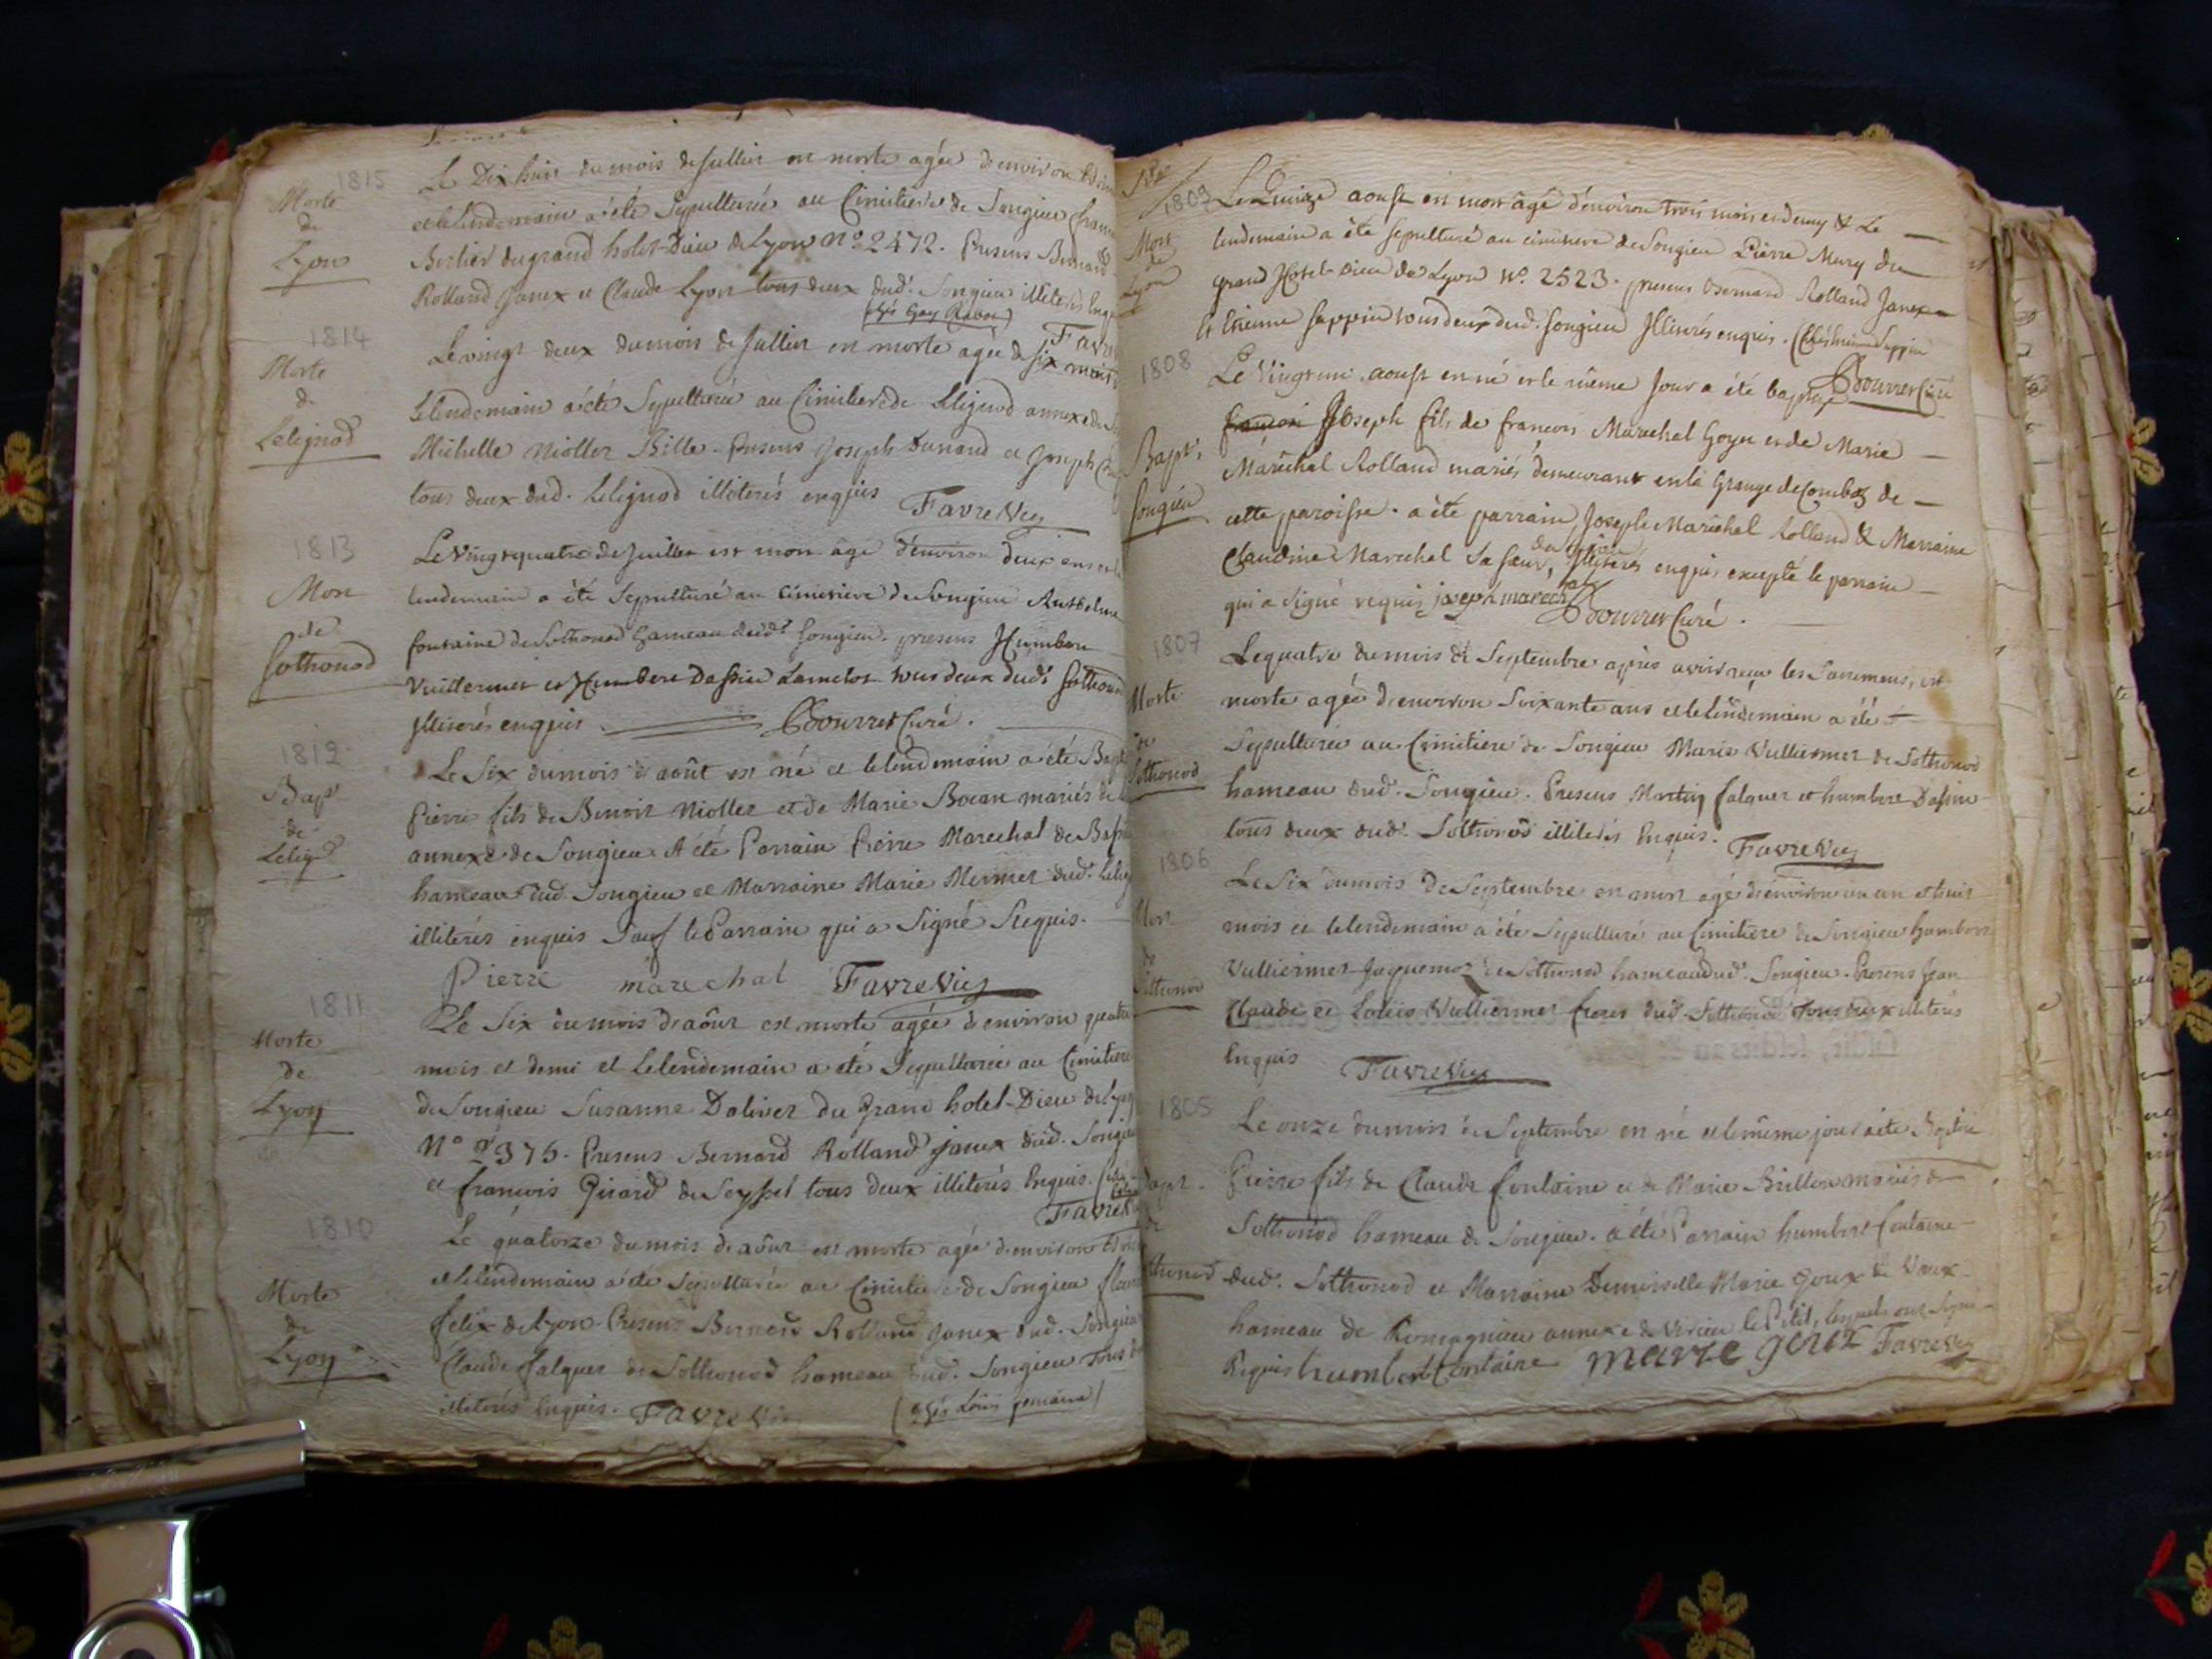 1815
Morte
de
Lyon
Le Dix huit du mois de Juillet est morte agée d'environ
et le lendemain a été Sepulturée au Cimitiere de Songieu
Berlier du grand hotel-Dieu de Lyon N° 2472. Presens Bernard
Rolland Janex et Claude Lyon tous deux dud. Songieu illiterés
(chés Gay Rabot)
Favre
1814
Morte
de
Lelignod
Le vingt deux du mois de Juillet est morte agée de six mois
le lendemain a été Sepulturée au Cimitiere de Lilignod annexe de
Michelle Niollet Bille. Presens Joseph Dunand et Joseph
tous deux dud. Lelignod illiterés enquis
Favre Vic
1813
Mort
de
Sothonod
Le Vingt quatre de Juillet est mort âgé d'environ deux ans et le
lendemain a été Sepulturé au cimitiere de Songieu Anthelme
fontaine de Sothonod hameau dud. Songieu. presens Humbert
Vuillermet et Humbert Dassin Lamelot tous deux dud. Sothonod
Illiterés enquis
Bourret Curé.
1812
Bapt
de
Lelig.
Le Six du mois d'août est né et le lendemain a été
Pierre fils de Benoit Niollet et de Marie Bocan mariés de
annexe de Songieu. A été Parrain Pierre Marechal de
hameau dud. Songieu et Marraine Marie Mermet dud.
illiterés enquis Sauf le Parrain qui a Signé Requis.
Pierre marechal Favre Vic
1811
Morte
de
Lyon
Le Six du mois d'aôut est morte agée d'environ quatre
mois et demi et le lendemain a été Sepulturée au Cimitiere
de Songieu Susanne Dolivet du Grand hotel-Dieu de Lyon
N° 2375. Presens Bernard Rolland Janex dud. Songieu
et francois Girard de Seyssel tous deux illiterés Enquis.
Favre
1810
Morte
de
Lyon
Le quatorze du mois d'aôut est morte agée d'environ
et le lendemain a été Sepulturée au Cimitiere de Songieu
felix de Lyon. Presens Bernard Rolland Janex dud. Songieu
Claude falquet de Sothonod hameau dud. Songieu tous
illiterés Enquis. Favre Vic
(chés Loüis jemaina)
1809
Mort
de
Lyon
Le Quinze aoust est mort âgé d'environ trois mois et demy & Le
lendemain a été sepulturé au cimitiere de Songieu Pierre Mury du
grand Hotel-Dieu de Lyon N°. 2523. presens Bernard Rolland Janex
et Etienne Sappin tous deux dud. Songieu Illiterés enquis.
Bourret Curé
1808
Bapt.
Songieu
Le Vingt un aoust est né et le même Jour a été baptisé
Joseph fils de francois Marechal Goyet et de Marie
Maréchal Rolland mariés demeurant en la Grange de Combaz de
cette paroisse. a été parrain Joseph Maréchal Rolland & Marraine
Claudine Marechal Sa sœur, Illiterés enquis excepté le parrain
qui a signé requis joseph marechal
Bourret Curé.
1807
Morte
de
Sothonod
Le quatre du mois de Septembre après avoir reçu les Sacremens, est
morte agée d'environ Soixante ans et le lendemain a été
Sepulturée au Cimitiere de Songieu Marie Vulliermet de Sothonod
hameau dud. Songieu. Presens Martin falquet et humbert Dassin
tous deux dud. Sothonod illiterés Enquis.
Favre Vic
1806
Mort
de
Sothonod
Le Six du mois de Septembre est mort agé d'environ un an et huit
mois et le lendemain a été Sepulturé au Cimitiere de Songieu humbert
Vulliermet Jaquemoz de Sothonod hameau dud. Songieu. Presens Jean
Claude et Loüis Vulliermet freres dud. Sothonod tous deux illiterés
Enquis
Favre Vic
1805
Bapt.
de
Sothonod
Le onze du mois de Septembre est né et le même jour a été Baptisé
Pierre fils de Claude fontaine et de Marie Brillon mariés de
Sothonod hameau de Songieu. a été Parrain humbert fontaine
dud. Sothonod et Marraine Demoiselle Marie Goux de Vaux
hameau de Romagnieu annexe de Virieu le Petit, lesquels ont Signé
Requis humbert fontaine marie goux Favre Vic